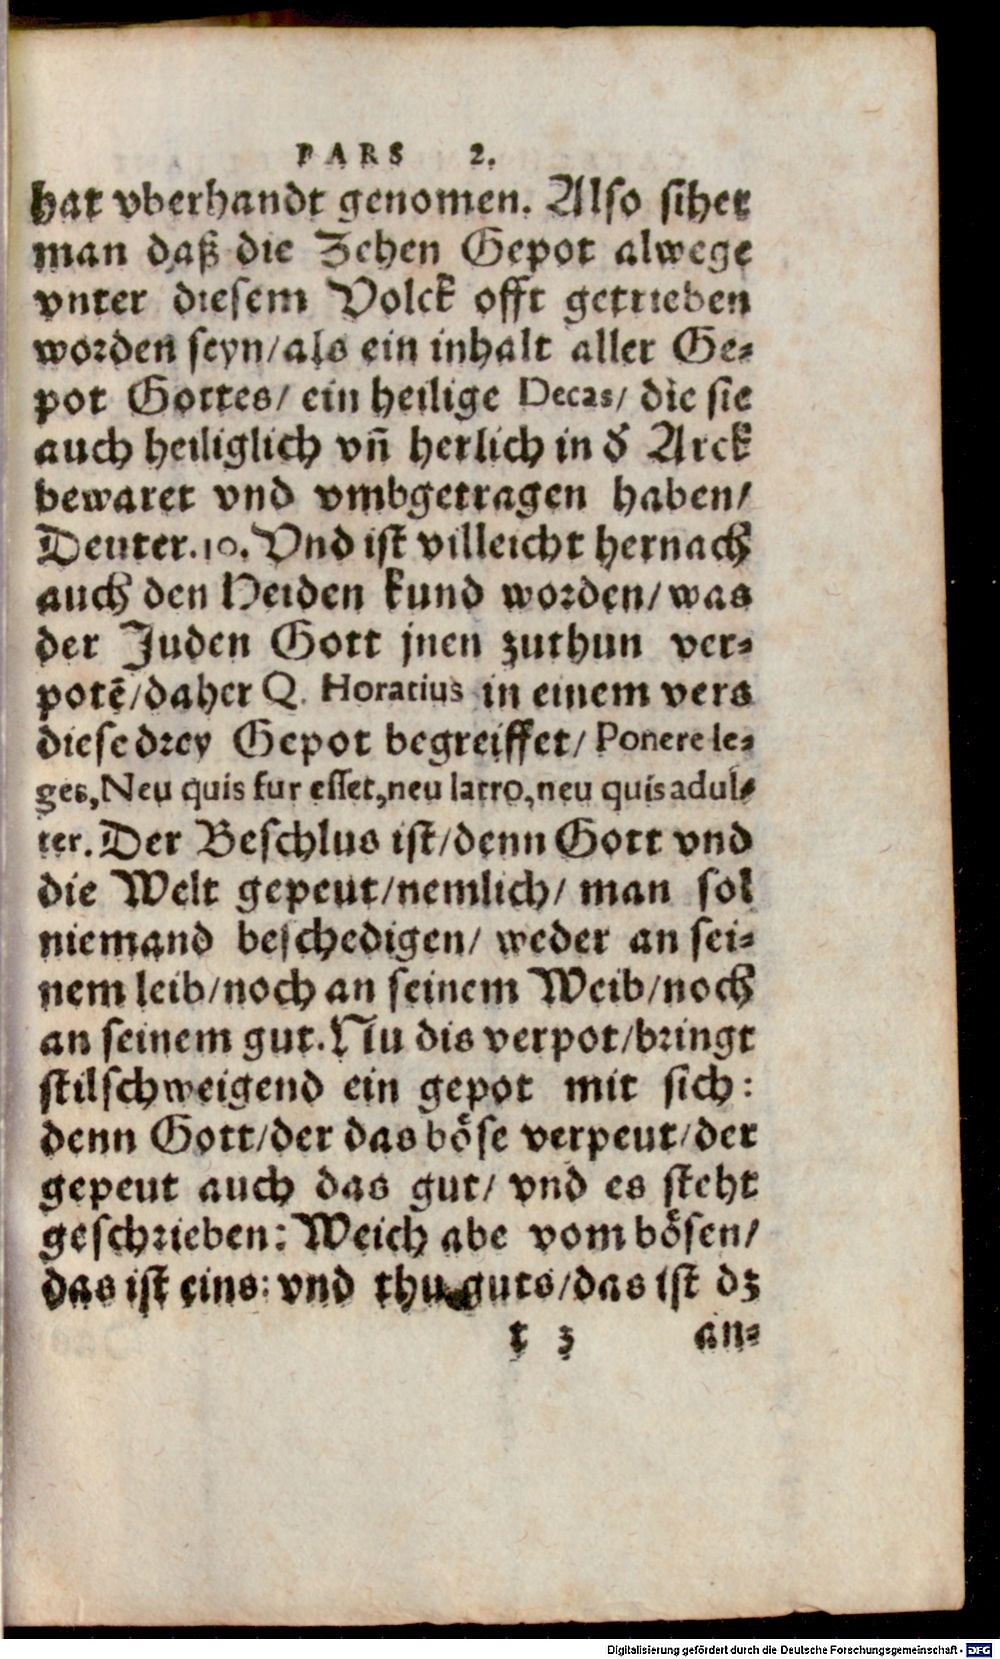 PARS 2.
hat vberhandt genomen. Also sihet
man daß die Zehen Gepot alwege
vnter diesem Volck offt getrieben
worden seyn/als ein inhalt aller Ge-
pot Gottes/ ein heilige Decas/ die sie
auch heiliglich vñ herlich in d̕ Arck
bewaret vnd vmbgetragen haben/
Deuter.10. Vnd ist villeicht hernach
auch den Heiden kund worden/was
der Juden Gott jnen zuthun ver-
potē/daher Q. Horatius in einem vers
diese drey Gepot begreiffet/ Ponere le-
ges, Neu quis fur esset, neu latro, neu quis adul-
ter. Der Beschlus ist/denn Gott vnd
die Welt gepeut/nemlich/ man sol
niemand beschedigen/ weder an sei-
nem leib/noch an seinem Weib/noch
an seinem gut. Nu dis verpot/bringt
stilschweigend ein gepot mit sich:
denn Gott/der das böse verpeut/der
gepeut auch das gut/ vnd es steht
geschrieben: Weich abe vom bösen/
das ist eins: vnd thu guts/das ist dz
t 3 an-
Digitalisierung gefördert durch die Deutsche Forschungsgemeinschaft - DFG